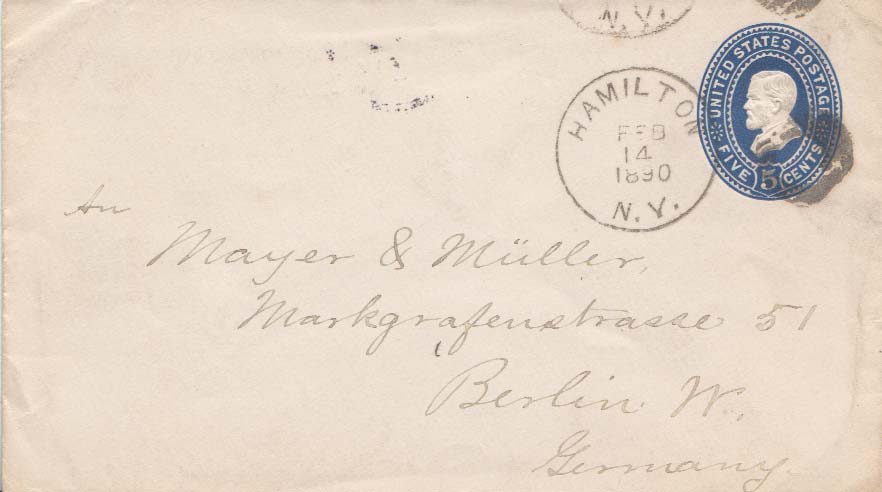 N.Y.
UNITED STATES POSTAGE
FIVE 5 CENTS
HAMILTON
FEB
14
1890
N.Y.
An
Mayer & Müller,
Markgrafenstrasse 51
Berlin W.
Germany.